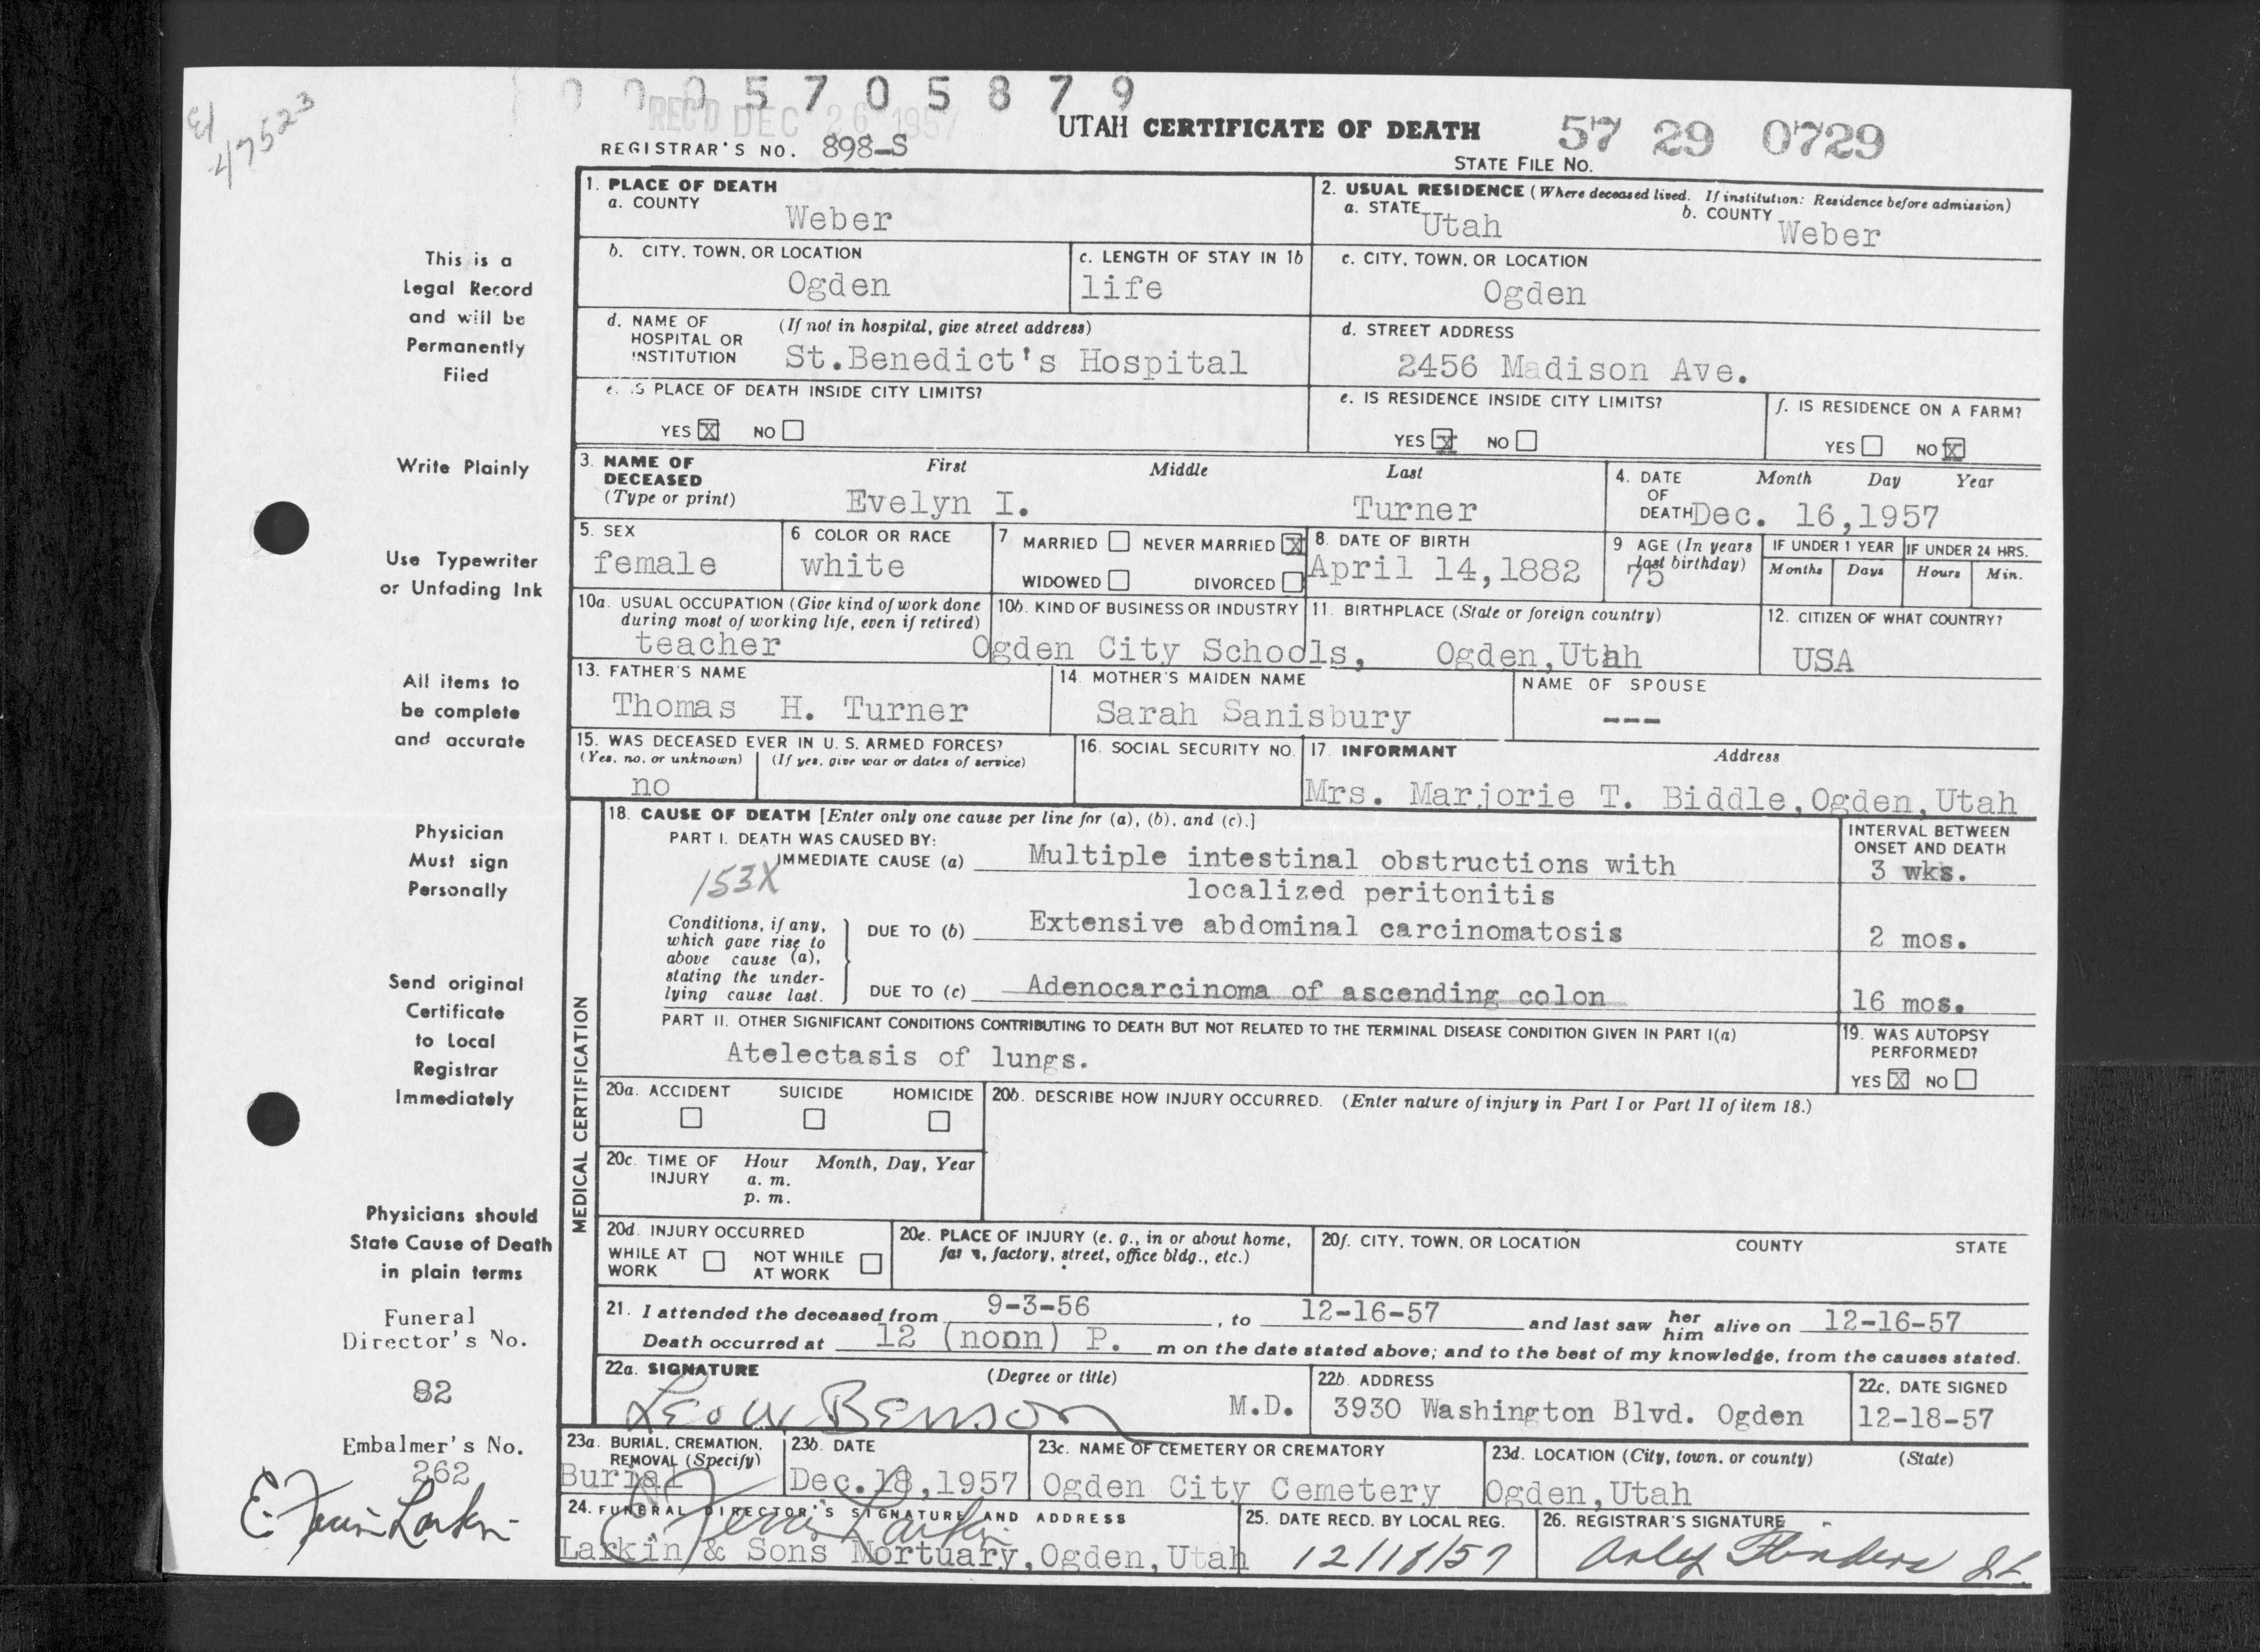 0 0 0 5 7 0 5 8 7 9
REC'D DEC 26 1957
47523
UTAH CERTIFICATE OF DEATH
57 29 0729
REGISTRAR'S NO. 898-S
STATE FILE NO.
1. PLACE OF DEATH
a. COUNTY
Weber
2. USUAL RESIDENCE (Where deceased lived. If institution: Residence before admission)
a. STATE Utah
b. COUNTY Weber
b. CITY, TOWN, OR LOCATION
Ogden
c. LENGTH OF STAY IN 1b
life
c. CITY, TOWN, OR LOCATION
Ogden
d. NAME OF HOSPITAL OR INSTITUTION
(If not in hospital, give street address)
St.Benedict's Hospital
d. STREET ADDRESS
2456 Madison Ave.
e. IS PLACE OF DEATH INSIDE CITY LIMITS?
YES X NO
e. IS RESIDENCE INSIDE CITY LIMITS?
YES X NO
f. IS RESIDENCE ON A FARM?
YES NO X
3. NAME OF DECEASED
(Type or print)
First Middle Last
Evelyn I. Turner
4. DATE OF DEATH
Month Day Year
Dec. 16,1957
5. SEX
female
6 COLOR OR RACE
white
7 MARRIED NEVER MARRIED X
WIDOWED DIVORCED
8. DATE OF BIRTH
April 14,1882
9 AGE (In years last birthday)
75
IF UNDER 1 YEAR
Months Days
IF UNDER 24 HRS.
Hours Min.
10a. USUAL OCCUPATION (Give kind of work done
during most of working life, even if retired)
teacher
10b. KIND OF BUSINESS OR INDUSTRY
Ogden City Schools,
11. BIRTHPLACE (State or foreign country)
Ogden,Utah
12. CITIZEN OF WHAT COUNTRY?
USA
13. FATHER'S NAME
Thomas H. Turner
14. MOTHER'S MAIDEN NAME
Sarah Sanisbury
NAME OF SPOUSE
---
15. WAS DECEASED EVER IN U. S. ARMED FORCES?
(Yes, no, or unknown) (If yes, give war or dates of service)
no
16. SOCIAL SECURITY NO.
17. INFORMANT Address
Mrs. Marjorie T. Biddle,Ogden,Utah
MEDICAL CERTIFICATION
18. CAUSE OF DEATH [Enter only one cause per line for (a), (b), and (c).]
PART I. DEATH WAS CAUSED BY:
INTERVAL BETWEEN
ONSET AND DEATH
IMMEDIATE CAUSE (a) Multiple intestinal obstructions with
3 wks.
153X
localized peritonitis
Conditions, if any,
which gave rise to
above cause (a),
stating the under-
lying cause last.
DUE TO (b) Extensive abdominal carcinomatosis
2 mos.
DUE TO (c) Adenocarcinoma of ascending colon
16 mos.
PART II. OTHER SIGNIFICANT CONDITIONS CONTRIBUTING TO DEATH BUT NOT RELATED TO THE TERMINAL DISEASE CONDITION GIVEN IN PART I(a)
Atelectasis of lungs.
19. WAS AUTOPSY
PERFORMED?
YES X NO
20a. ACCIDENT SUICIDE HOMICIDE
20b. DESCRIBE HOW INJURY OCCURRED. (Enter nature of injury in Part I or Part II of item 18.)
20c. TIME OF INJURY
Hour Month, Day, Year
a. m.
p. m.
20d. INJURY OCCURRED
WHILE AT WORK
NOT WHILE AT WORK
20e. PLACE OF INJURY (e. g., in or about home,
farm, factory, street, office bldg., etc.)
20f. CITY, TOWN, OR LOCATION COUNTY STATE
21. I attended the deceased from 9-3-56, to 12-16-57 and last saw her him alive on 12-16-57
Death occurred at 12 (noon) P. m on the date stated above; and to the best of my knowledge, from the causes stated.
22a. SIGNATURE (Degree or title)
Leo W Benson M.D.
22b. ADDRESS
3930 Washington Blvd. Ogden
22c. DATE SIGNED
12-18-57
23a. BURIAL, CREMATION,
REMOVAL (Specify)
Burial
23b. DATE
Dec.18,1957
23c. NAME OF CEMETERY OR CREMATORY
Ogden City Cemetery
23d. LOCATION (City, town, or county) (State)
Ogden,Utah
24. FUNERAL DIRECTOR'S SIGNATURE AND ADDRESS
Larkin & Sons Mortuary,Ogden,Utah
25. DATE RECD. BY LOCAL REG.
12/18/57
26. REGISTRAR'S SIGNATURE
This is a
Legal Record
and will be
Permanently
Filed
Write Plainly
Use Typewriter
or Unfading Ink
All items to
be complete
and accurate
Physician
Must sign
Personally
Send original
Certificate
to Local
Registrar
Immediately
Physicians should
State Cause of Death
in plain terms
Funeral
Director's No.
82
Embalmer's No.
262